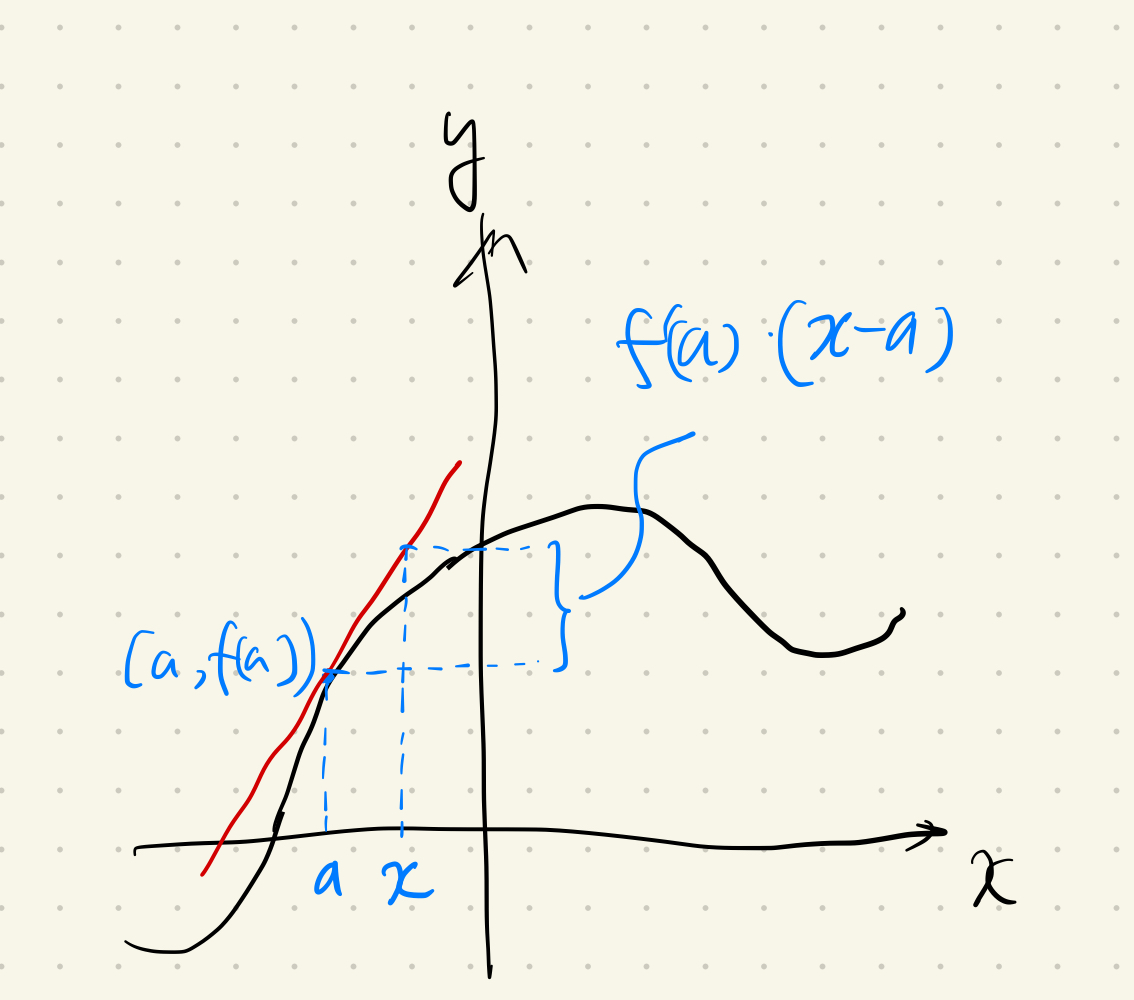 y
f'(a) · (x-a)
(a, f(a))
a x
x